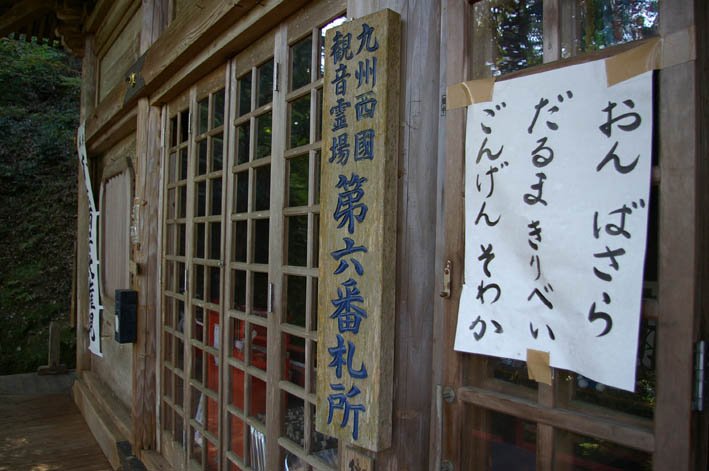 九州西國
観音霊場
第六番札所
おん ばさら
だるま きりべい
ごんげん そわか